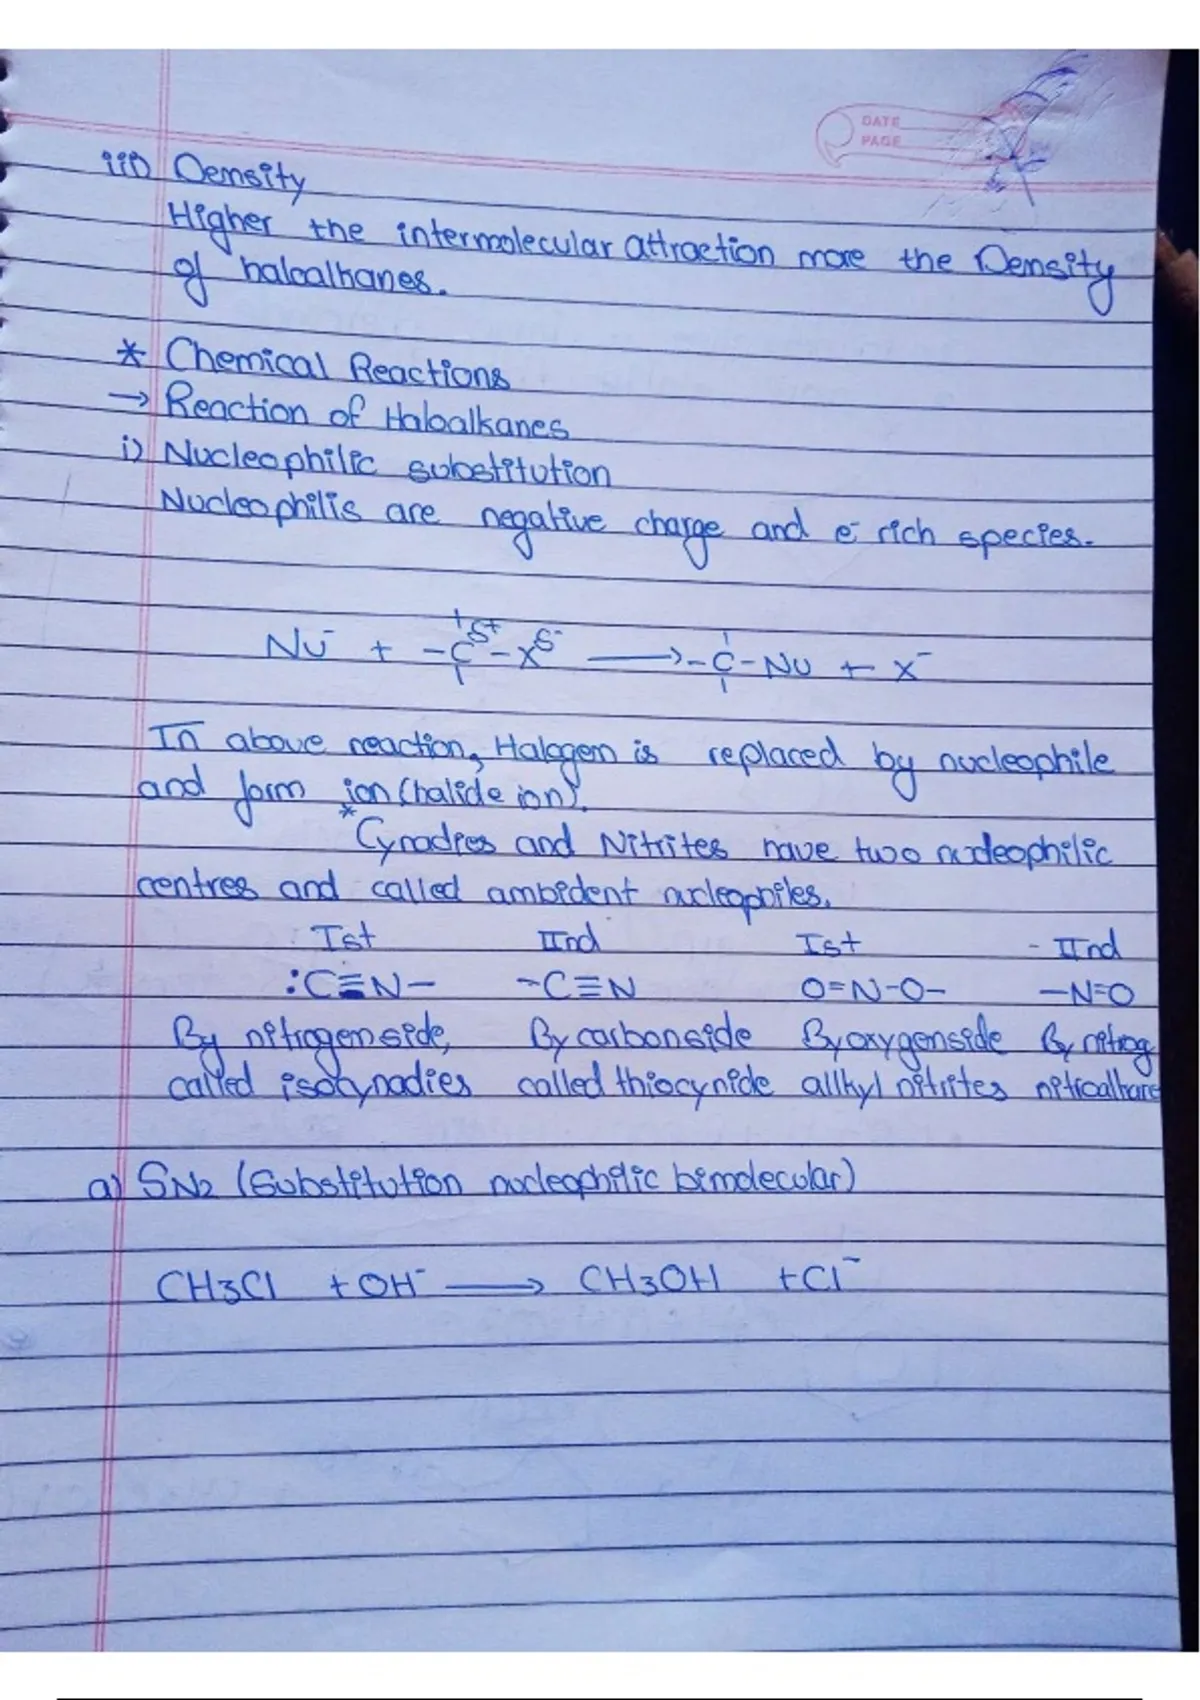 DATE
PAGE
iii) Density
Higher the intermolecular attraction more the Density
of haloalkanes.
* Chemical Reactions
→ Reaction of Haloalkanes
i) Nucleophilic substitution
Nucleophilis are negative charge and e⁻ rich species.
Nu⁻ + -C^δ+-X^δ- ⟶ -C-Nu + X⁻
In above reaction, Halogen is replaced by nucleophile
and form ion (halide ion).
* Cynadies and Nitrites have two nucleophilic
centres and called ambident nucleophiles.
Ist IInd Ist - IInd
:C≡N- -C≡N O=N-O- -N=O
By nitrogen side, By carbon side By oxygen side By nitrog
called isocynadies called thiocynide allkyl nitrites nitroalkane
a) SN2 (Substitution nucleophilic bimolecular)
CH3Cl + OH⁻ ⟶ CH3OH + Cl⁻